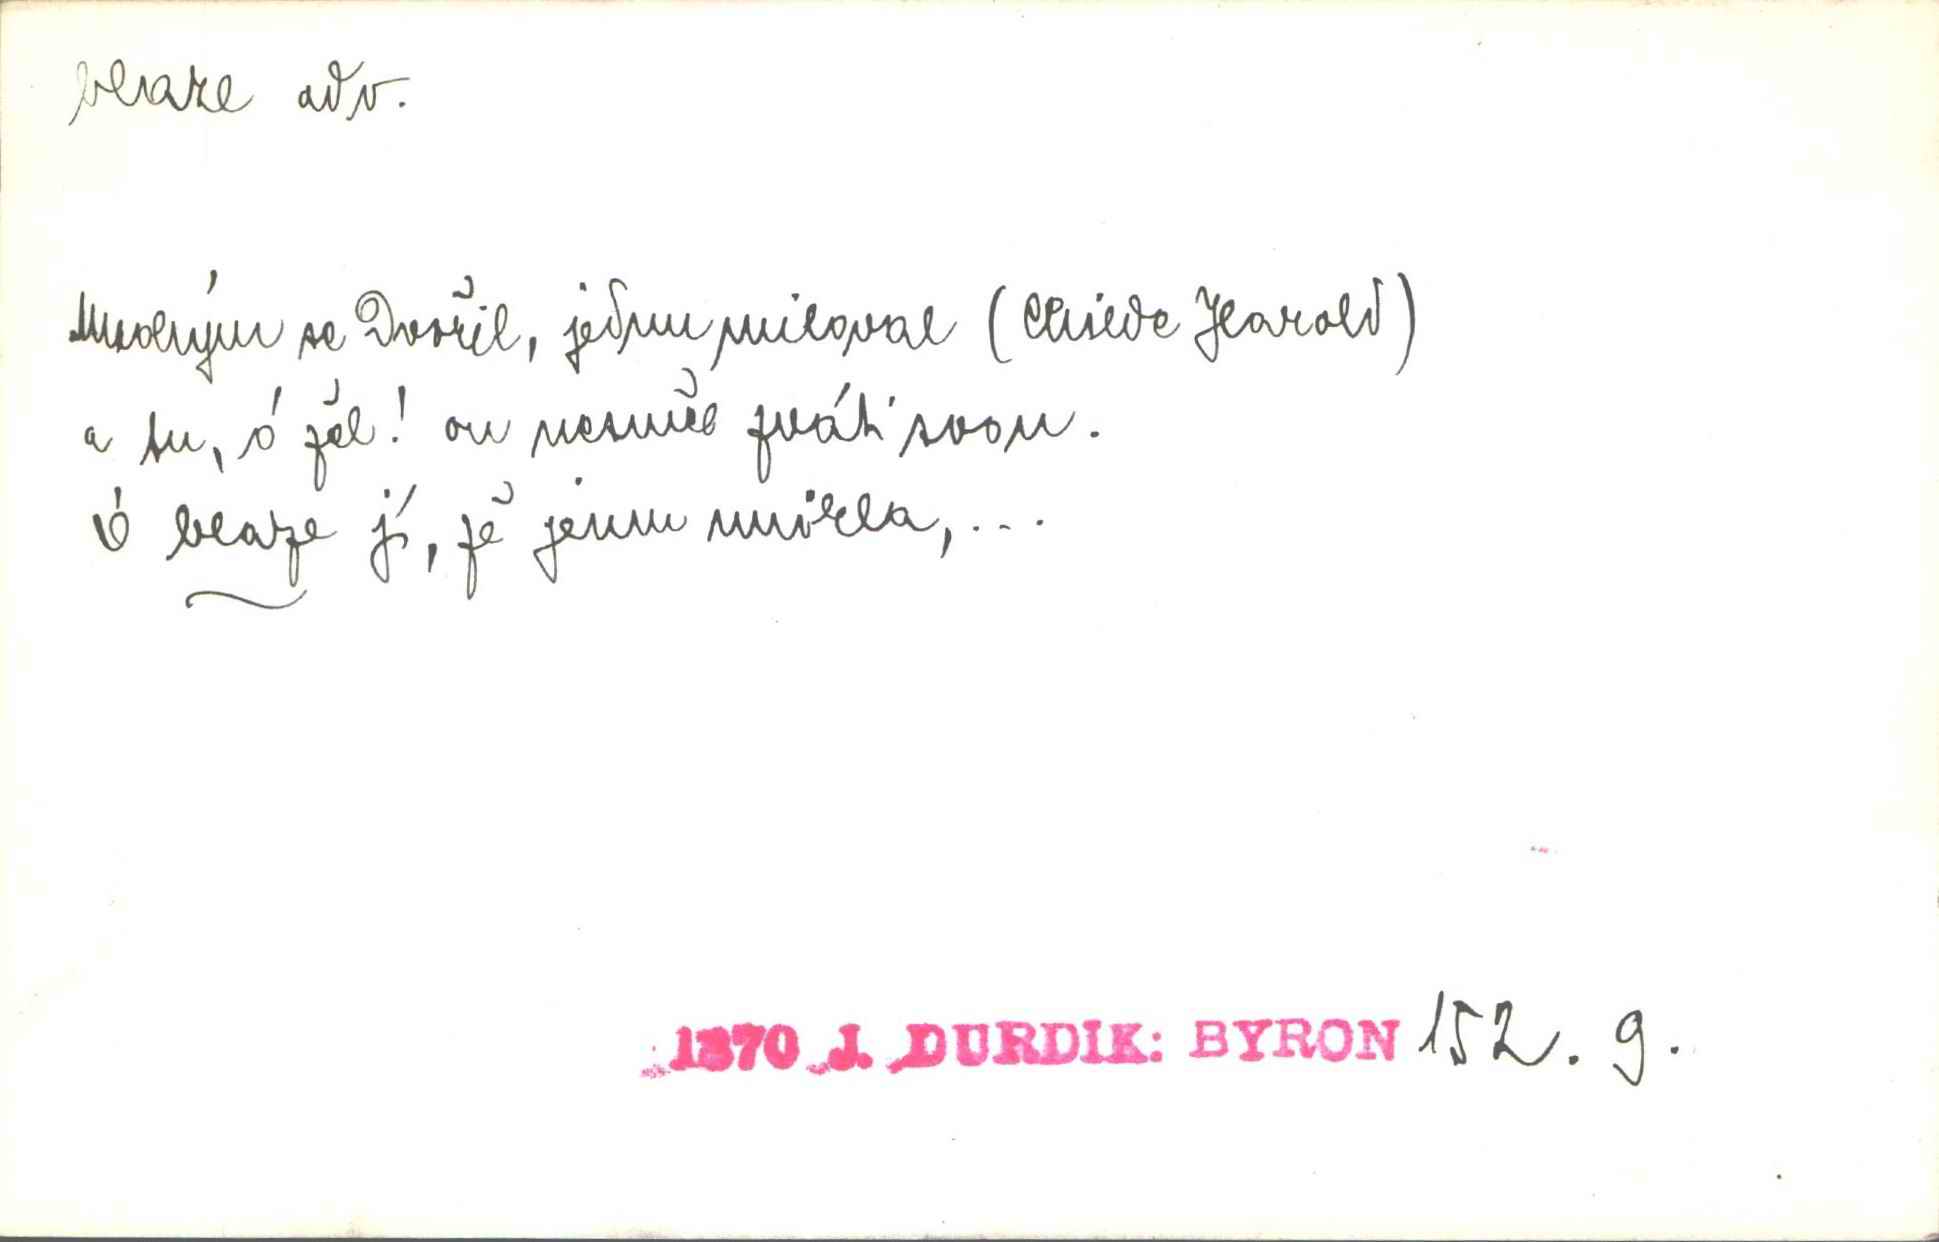 blaze adv.
Mnohým se dvořil, jednu miloval (Childe Harold)
a tu, ó žel! on nesměl zváti svou.
Ó blaze jí, že jemu unikla, ...
1870 J. DURDIK: BYRON 152. 9.